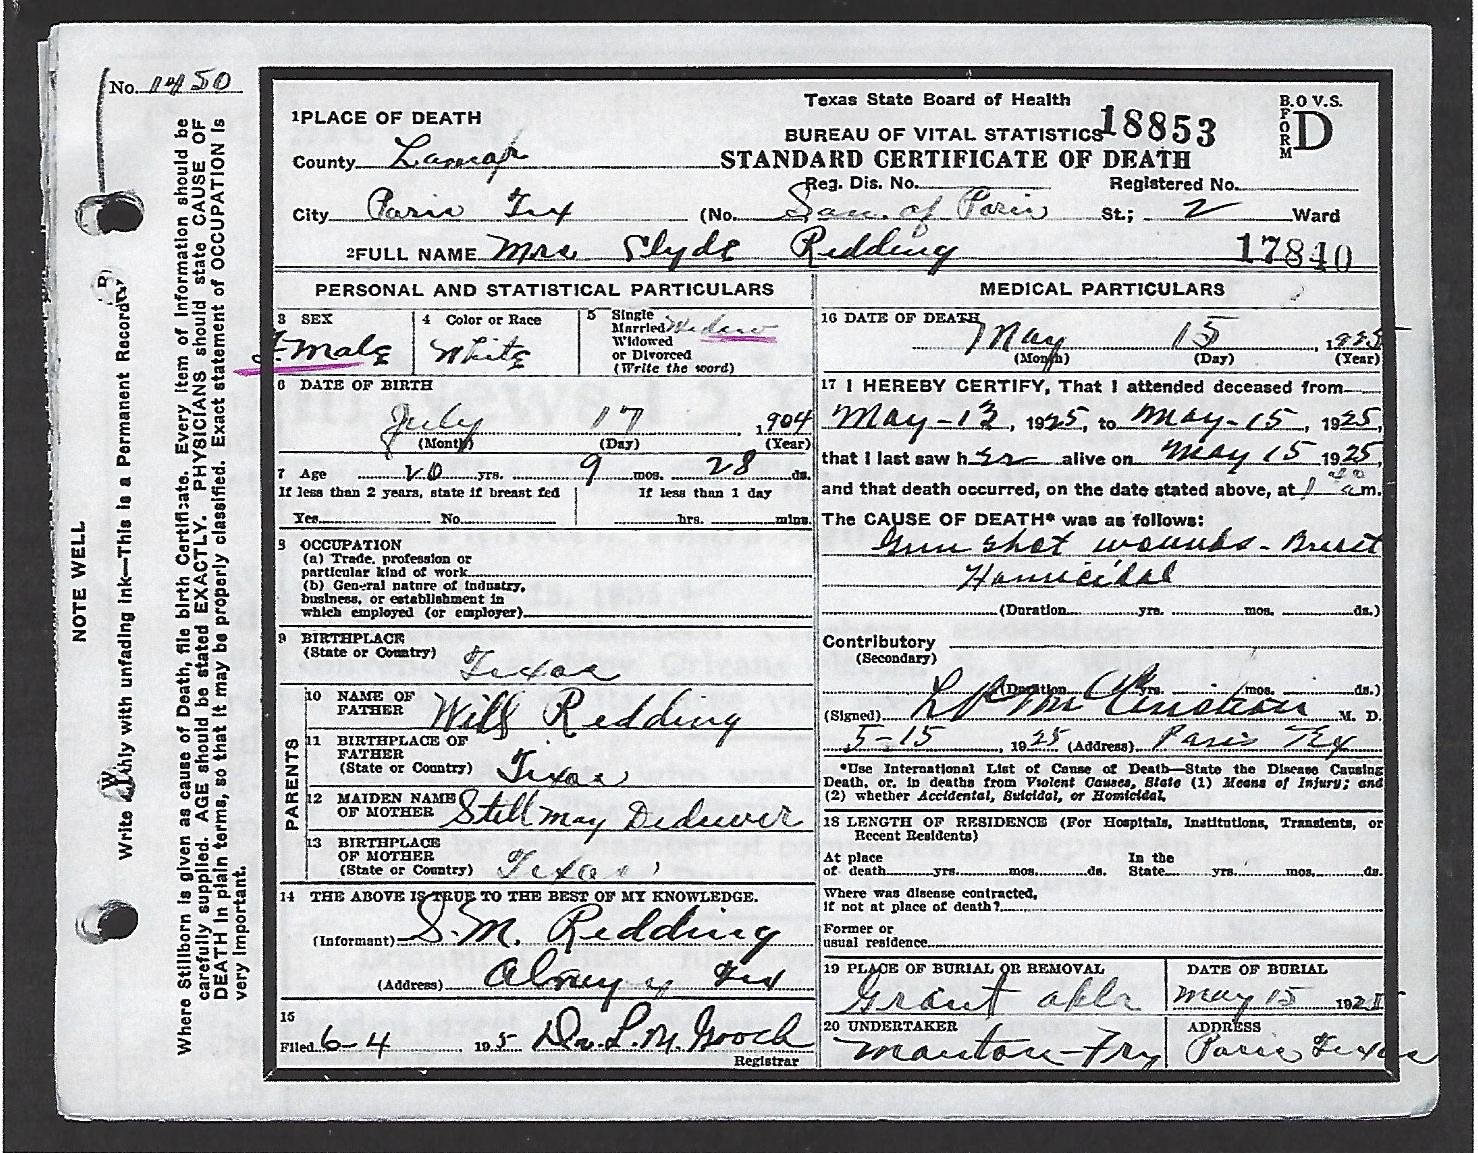 No. 1450
Texas State Board of Health
B.O V.S.
FORM D
1 PLACE OF DEATH
BUREAU OF VITAL STATISTICS 18853
County Lamar
STANDARD CERTIFICATE OF DEATH
Reg. Dis. No. Registered No.
City Paris Tex (No. San. of Paris St.; 2 Ward
2 FULL NAME Mrs Clyde Redding 17840
PERSONAL AND STATISTICAL PARTICULARS
3 SEX Female
4 Color or Race White
5 Single
Married Widow
Widowed
or Divorced
(Write the word)
6 DATE OF BIRTH
July 17, 1904
(Month) (Day) (Year)
7 Age 20 yrs. 9 mos. 28 ds.
If less than 2 years, state if breast fed
Yes No
If less than 1 day
hrs. mins.
8 OCCUPATION
(a) Trade, profession or
particular kind of work
(b) General nature of industry,
business, or establishment in
which employed (or employer)
9 BIRTHPLACE
(State or Country) Texas
PARENTS
10 NAME OF
FATHER Will Redding
11 BIRTHPLACE OF
FATHER
(State or Country) Texas
12 MAIDEN NAME
OF MOTHER Still May
13 BIRTHPLACE
OF MOTHER
(State or Country) Texas
14 THE ABOVE IS TRUE TO THE BEST OF MY KNOWLEDGE.
(Informant) S. M. Redding
(Address) Tex
15
Filed 6-4 1925 Dr. L. M. Gooch
Registrar
MEDICAL PARTICULARS
16 DATE OF DEATH
May 15, 1925
(Month) (Day) (Year)
17 I HEREBY CERTIFY, That I attended deceased from
May-13, 1925, to May-15, 1925,
that I last saw her alive on May 15 1925,
and that death occurred, on the date stated above, at 1 am.
The CAUSE OF DEATH* was as follows:
Gun shot wounds - Brest
Homicidal
(Duration yrs. mos. ds.)
Contributory
(Secondary)
(Duration yrs. mos. ds.)
(Signed) M. D.
5-15, 1925 (Address) Paris Tex
*Use International List of Cause of Death—State the Disease Causing
Death, or, in deaths from Violent Causes, State (1) Means of Injury; and
(2) whether Accidental, Suicidal, or Homicidal.
18 LENGTH OF RESIDENCE (For Hospitals, Institutions, Transients, or
Recent Residents)
At place
of death yrs. mos. ds.
In the
State yrs. mos. ds.
Where was disease contracted,
if not at place of death?
Former or
usual residence
19 PLACE OF BURIAL OR REMOVAL
Grant Okla
DATE OF BURIAL
May 15 1925
20 UNDERTAKER
Manton-Fry
ADDRESS
Paris Texas
NOTE WELL
Write Only with unfading ink—This is a Permanent Record.
Where Stillborn is given as cause of Death, file birth Certificate. Every item of Information should be
carefully supplied. AGE should be stated EXACTLY. PHYSICIANS should state CAUSE OF
DEATH in plain terms, so that it may be properly classified. Exact statement of OCCUPATION is
very important.